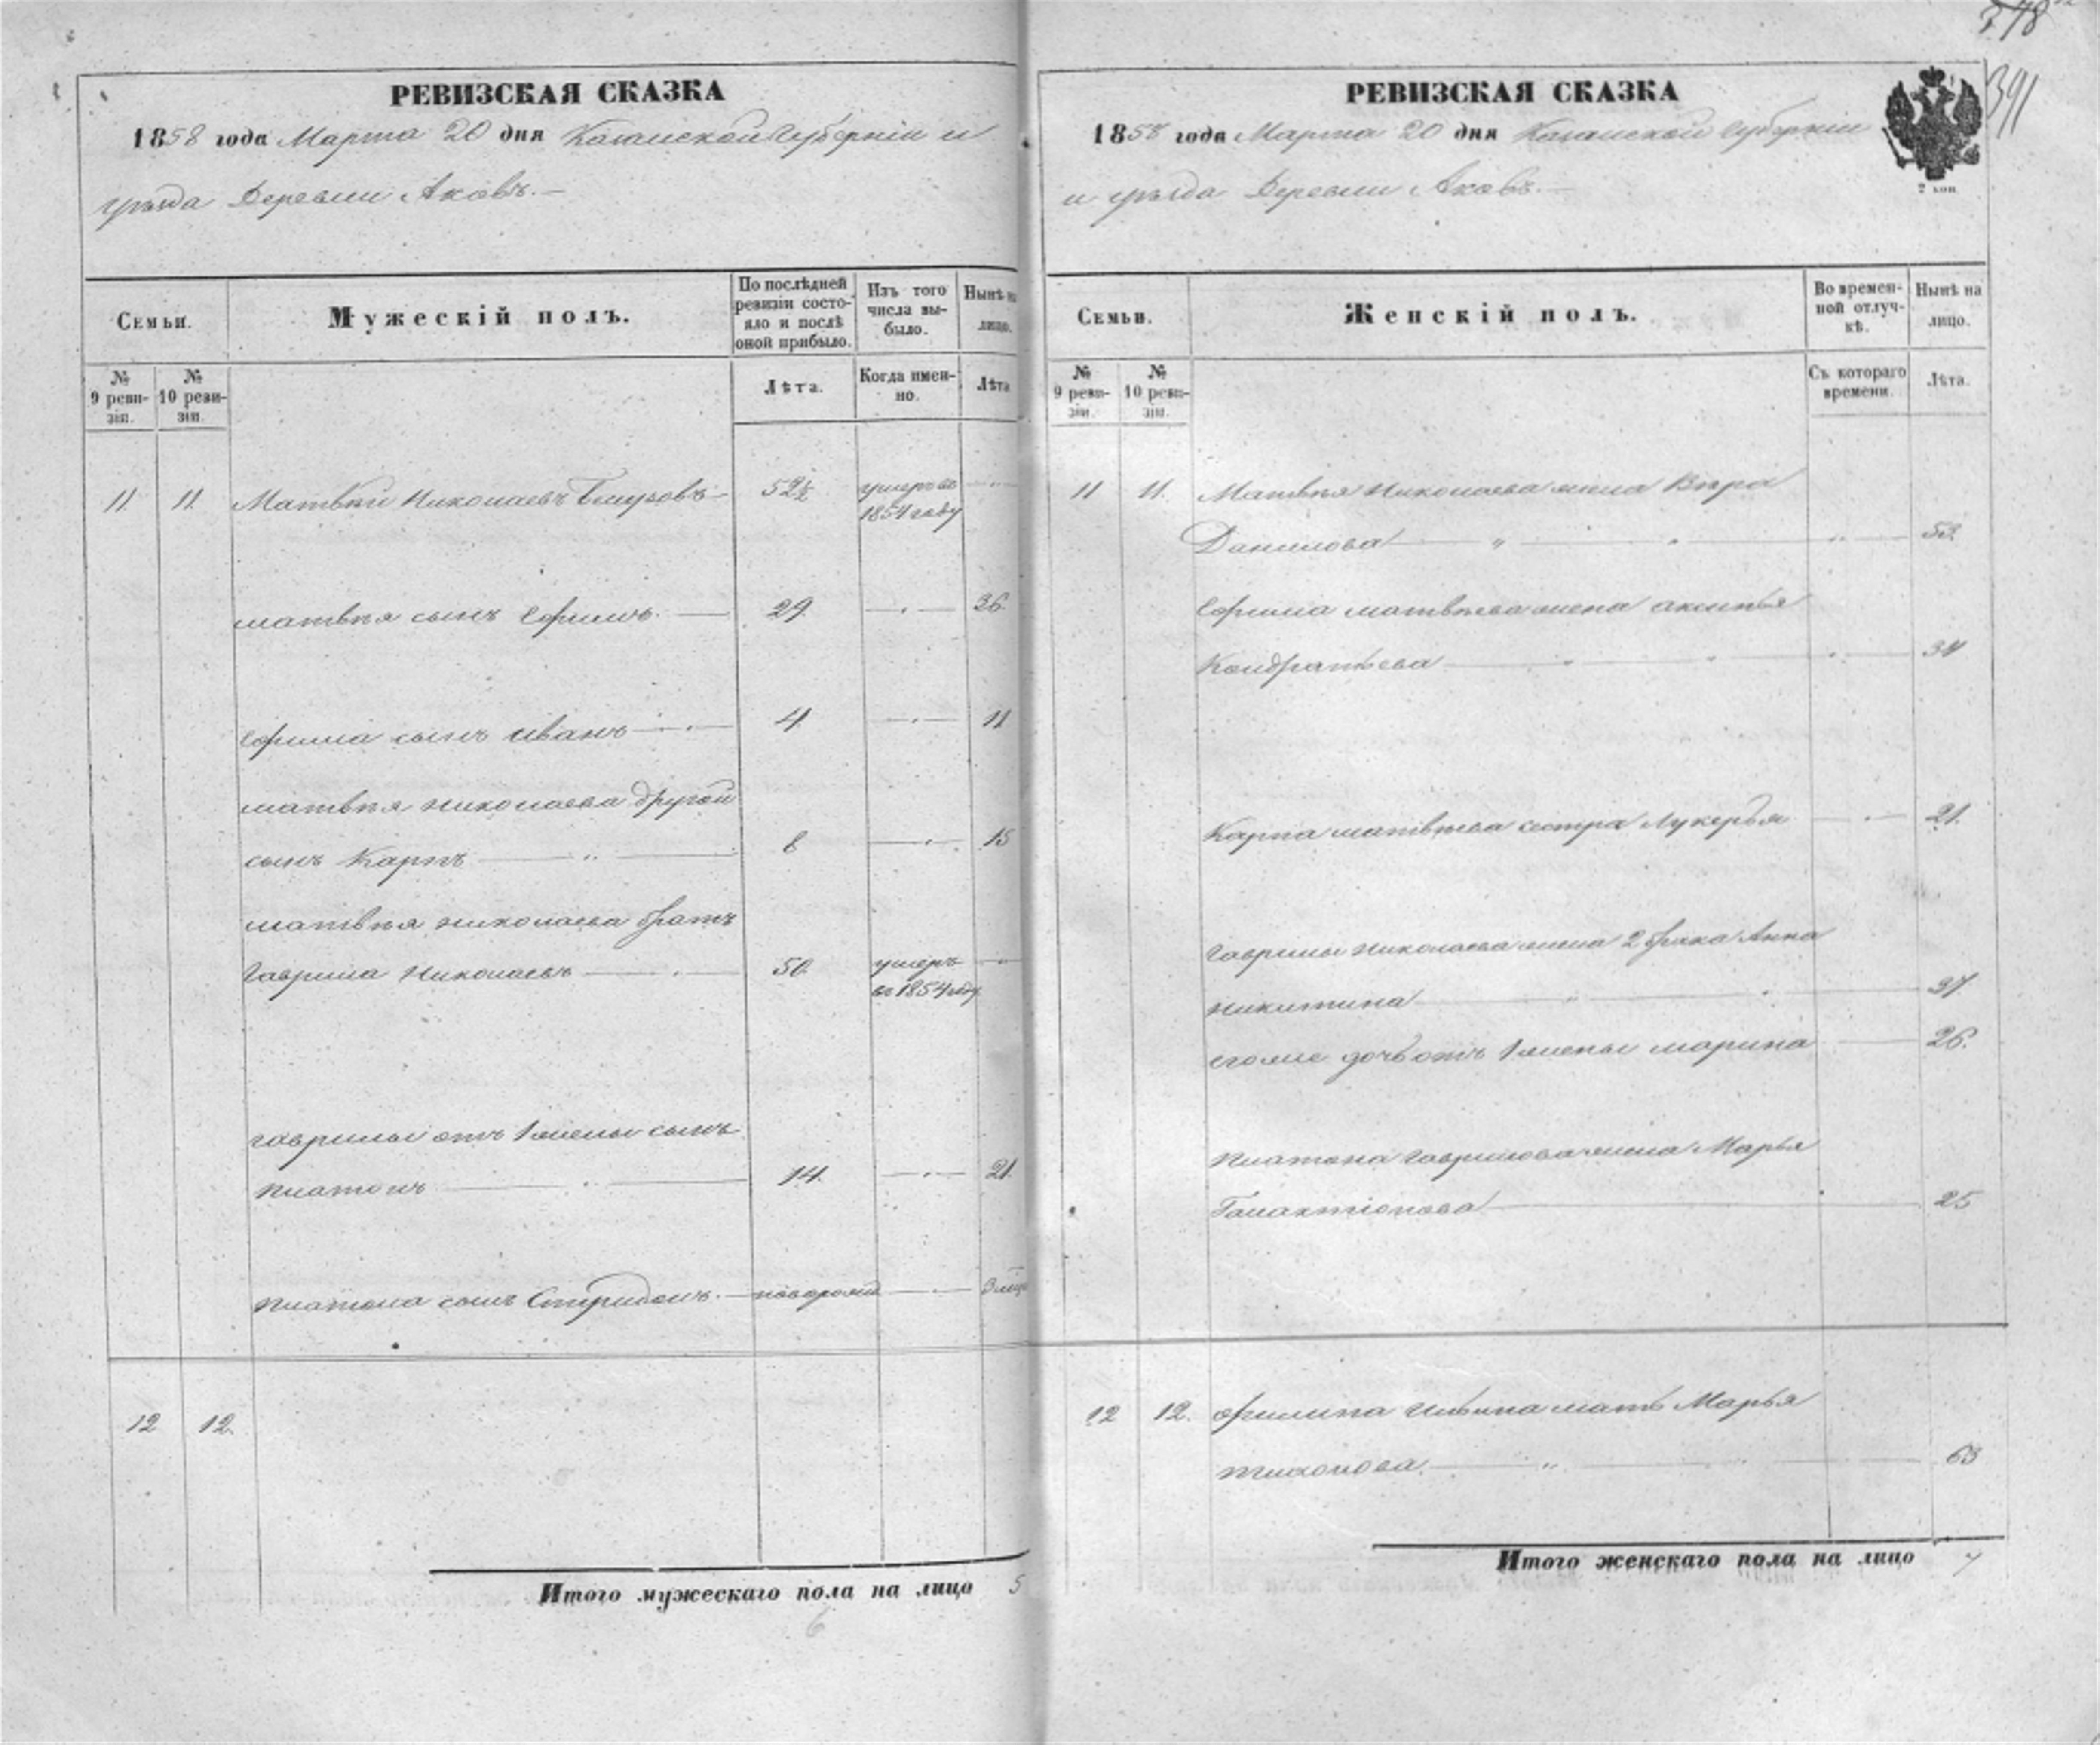 378
391
РЕВИЗСКАЯ СКАЗКА
1858 года Марта 20 дня Казанской Губерніи и
уѣзда Деревни Аковъ. —
Семьи.
Мужескій полъ.
По послѣдней ревизіи состояло и послѣ оной прибыло.
Изъ того числа выбыло.
Нынѣ на лицо.
№ 9 ревизіи.
№ 10 ревизіи.
Лѣта.
Когда именно.
Лѣта
11. 11. Матвѣй Николаевъ 52½ умеръ въ
1854 году
матвѣя сынъ Ефимъ. — 29. — 36.
Ефима сынъ иванъ — 4. — 11
матвѣя николаева другой
сынъ Карпъ — 8 — 15
матвѣя николаева братъ
Гаврила Николаевъ — 50. умеръ —
въ 1854 году
гаврилы отъ 1 жены сынъ
платонъ — 14. — 21.
платона сынъ Спиридонъ. — новорожд — 3 мѣс
12 12.
Итого мужескаго пола на лицо 5
6
РЕВИЗСКАЯ СКАЗКА
1858 года Марта 20 дня Казанской Губерніи
и уѣзда Деревни Аковъ. —
2 коп.
Семьи.
Женскій полъ.
Во временной отлучкѣ.
Нынѣ на лицо.
№ 9 ревизіи.
№ 10 ревизіи.
Съ котораго времени.
Лѣта.
11 11. Матвѣя Николаева жена Вѣра
Данилова — 53.
Ефима матвѣева жена аксинья
Кондратьева — 34
Карпа матвѣева сестра Лукерья — 21.
Гаврилы николаева жена 2 брака Анна
никитина — 37.
егоже дочь отъ 1 жены марина — 26.
платона гаврилова жена Марья
Галактіонова — 25
12 12. филипа мать Марья
тихонова. — 63
Итого женскаго пола на лицо 7